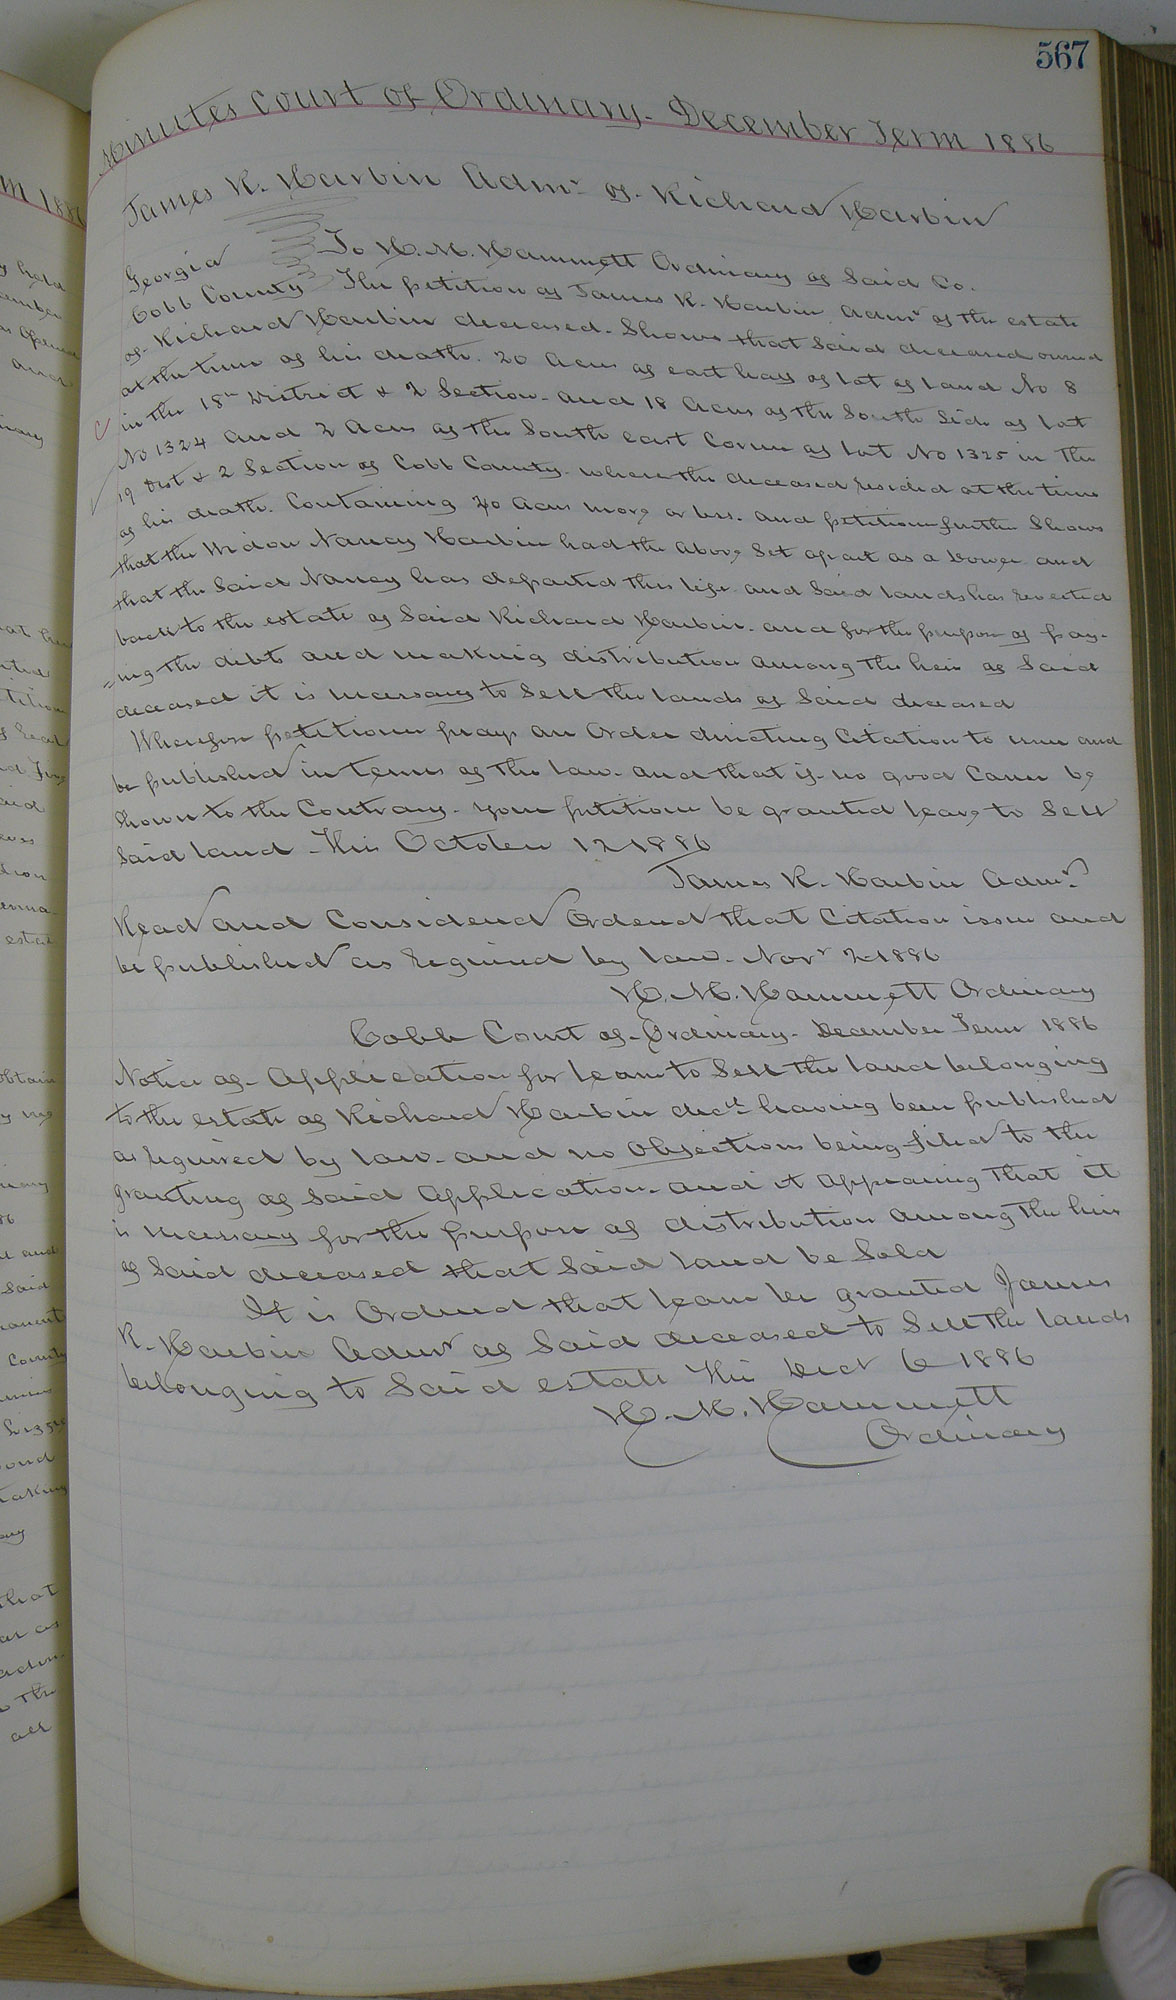 567
Minutes Court of Ordinary. December Term 1886
James R. Harbin Admr of Richard Harbin
Georgia To H. M. Hammett Ordinary of Said Co.
Cobb County The petition of James R. Harbin Admr of the estate
of Richard Harbin deceased. Shows that Said deceased owned
at the time of his death. 20 Acres of east half of lot of land No 8
in the 18th District & 2 Section. and 18 Acres of the South Side of lot
No 1324 and 2 Acres of the South east Corner of lot No 1325 in the
19 Dist & 2 Section of Cobb County. where the deceased resided at the time
of his death. Containing 40 Acres more or less. and petitioner further Shows
that the Widow Nancy Harbin had the above Set apart as a Dower and
that the Said Nancy has departed this life and Said lands has reverted
back to the estate of Said Richard Harbin. and for the purpose of pay-
=ing the debts and making distribution among the heirs of Said
deceased it is necessary to Sell the lands of Said deceased
Wherefore petitioner prays an Order directing Citation to issue and
be published in terms of the law. and that if no good Cause be
Shown to the Contrary. your petitioner be granted leave to Sell
Said land. This October 12 1886
James R. Harbin Admr
Read and Considered Ordered that Citation issue and
be published as required by law. Novr 2 1886
H. M. Hammett Ordinary
Cobb Court of Ordinary. December Term 1886
Notice of Application for leave to Sell the land belonging
to the estate of Richard Harbin decd having been published
as required by law. and no Objections being filed to the
granting of Said Application. and it appearing that it
is necessary for the purpose of distribution among the heirs
of Said deceased that Said land be Sold
It is Ordered that leave be granted James
R. Harbin Admr of Said deceased to Sell the lands
belonging to Said estate This Decr 6 1886
H. M. Hammett
Ordinary